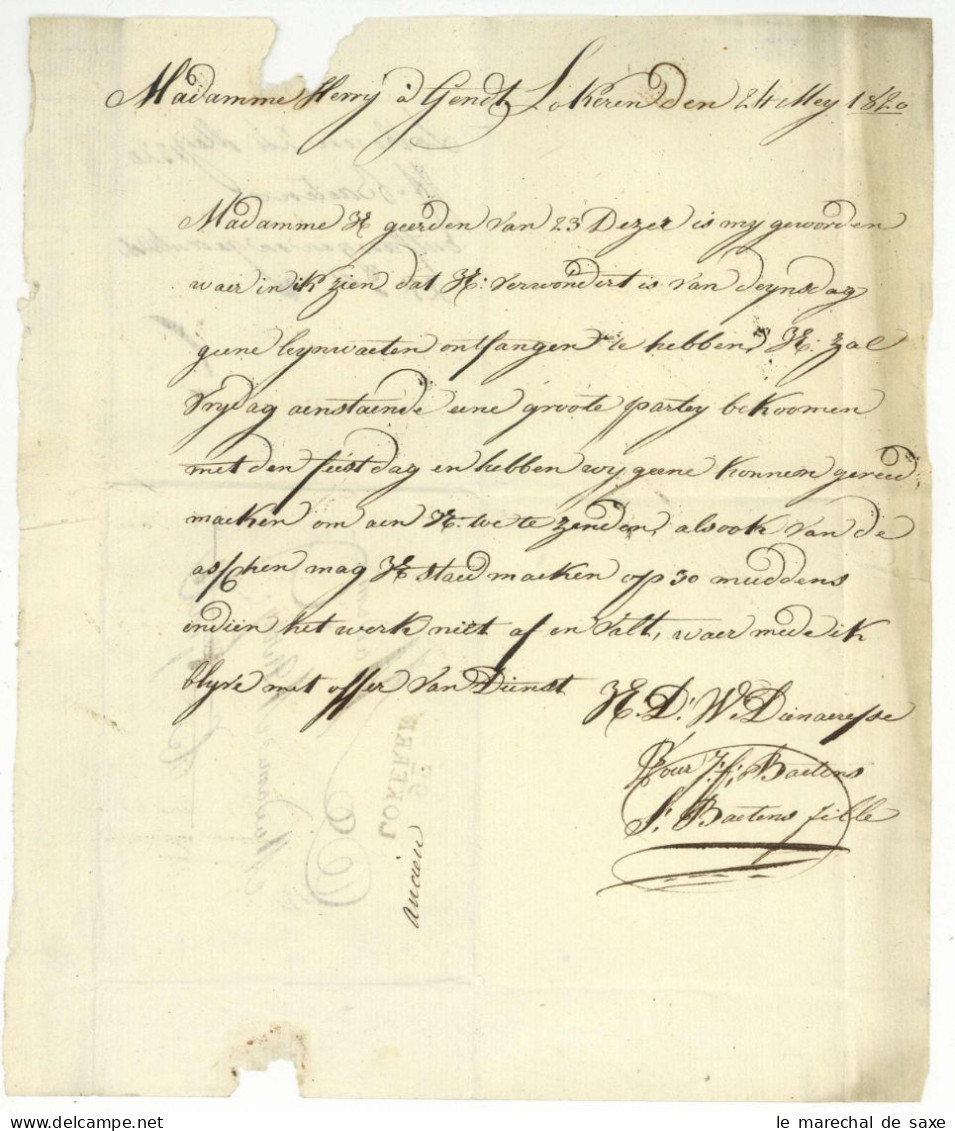 Madamme Herry à Gendt, Lokeren den 24 Mey 1820
Madamme UE geerden van 23 Dezer is my geworden
waer in ik zien dat UE: verwondert is van deynsdag
geene leynwaeten ontfangen te hebben, UE: zal
vrydag aenstaende eene groote partey bekoomen
met den feest dag en hebben wy geene konnen gereed
maeken om aen UE: toe te zenden, alsook van de
asschen mag UE staed maeken op 30 muddens
indien het werk niet af en valt, waer mede ik
blyve met offer van Dienst
UE. Dt. We Dienaeresse
Pour J: f: Baetens
S: Baetens fille
ancien
LOKEREN
le marechal de saxe